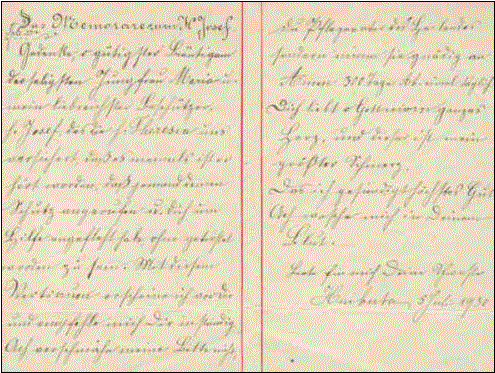 Das Memorare zum hl. Josef
Gedenke, o gütigster Bräutigam
der seligsten Jungfrau Maria u.
mein liebreichster Beschützer,
h. Josef, das die h. Theresia uns
versichert daß es niemals ist er
hört worden, daß jemand deinen
Schutz angerufen u. dich um
Hilfe angefleht habe ohne getröstet
worden zu sein. Mit diesem
Vertrauen erscheine ich vor dir
und empfehle mich Dir inständig
Ach verschmähe meine Bitte nicht,
du Pflegevater des Heilandes
sondern nimm sie gnädig an
Amen 300 Tage Abl. einmal täglich
Dich liebt o Gott mein ganzes
Herz, und dieses ist mein
größter Schmerz,
Das ich höchstes Gut
Ach wasche mich in Deinem
Blut.
Bete für mich Deine
5 Juli 1930